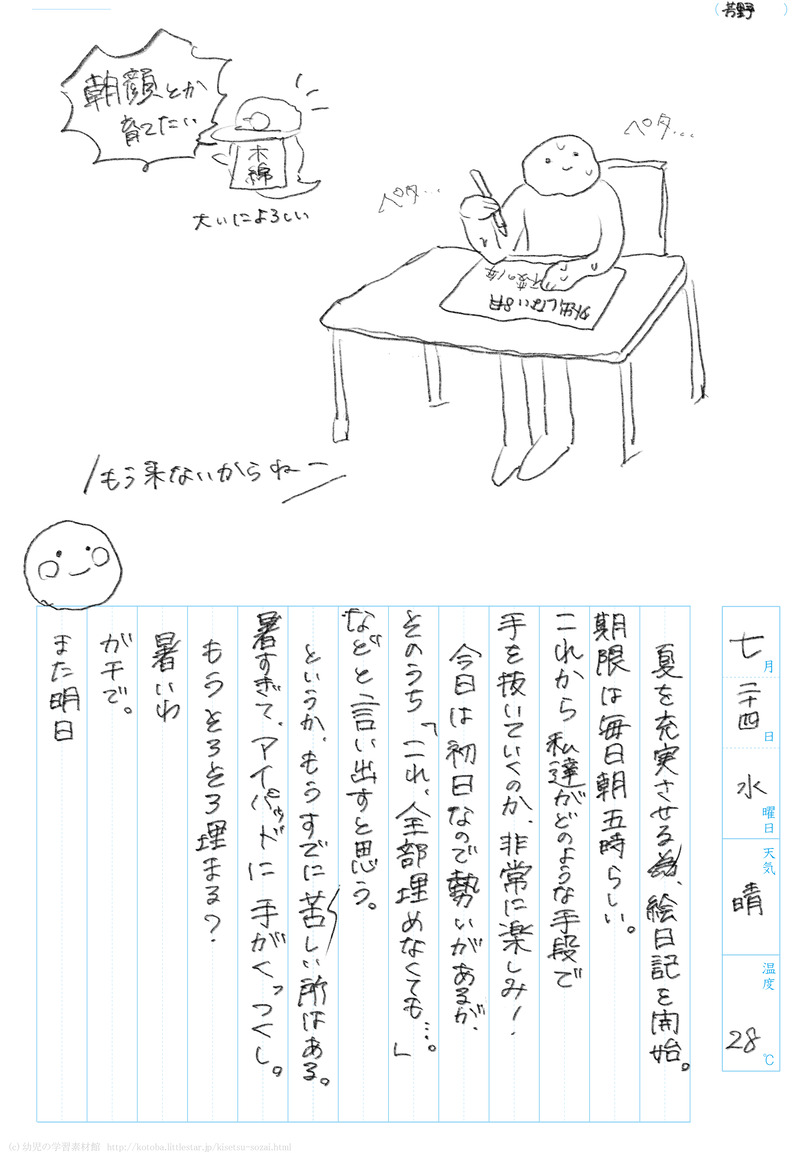 (芳野)
朝顔とか
育てたい
木綿
大いによろしい
ペタ…
ペタ…
外出しない8月
不変の1年
もう来ないからねー
七月
二十四日
水曜日
天気
晴
温度
28℃
夏を充実させる為、絵日記を開始。
期限は毎日朝五時らしい。
これから私達がどのような手段で
手を抜いていくのか、非常に楽しみ!
今日は初日なので勢いがあるが、
そのうち「これ、全部埋めなくても…。」
などと言い出すと思う。
というか、もうすでに苦しい所はある。
暑すぎて、アイパッドに手がくっつくし。
もうそろそろ埋まる?
暑いわ
ガチで。
また明日
(c) 幼児の学習素材館 http://kotoba.littlestar.jp/kisetsu-sozai.html